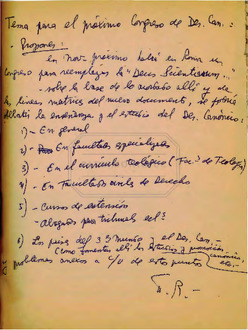 Tema para el próximo Congreso de Der. Can.:
- Propones:
en nov. próximo habrá en Roma un
Congreso para reemplazar la "Deus Scientiarum..."
- sobre la base de lo acordado allí y de
las líneas matrices del nuevo documento, se podría
la enseñanza y el estudio del Der. Canónico:
1) - En general
2) - En facultades especializadas
3) - En el currículo teológico (Fac. de Teología)
4) - En Facultades civiles de Derecho
5) - Cursos de extensión
- Abogados para tribunales ecl.
6) Los países del 3er Mundo y el Der. Can. -
(cómo fomentar allí los estudios y
problemas anexos a c/u de estos puntos
A. R. -